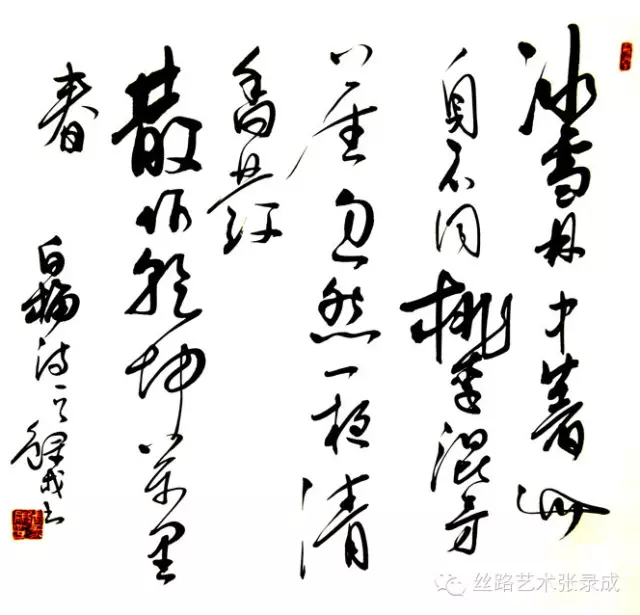 冰雪林中著此
身不同桃李混芳
尘忽然一夜清
香发
散作乾坤万里
春
白梅诗一首录成书
丝路艺术张录成